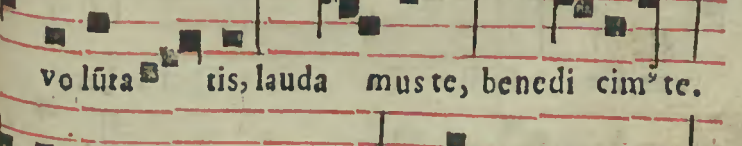 volūta tis, lauda mus te, benedi cimꝰ te.